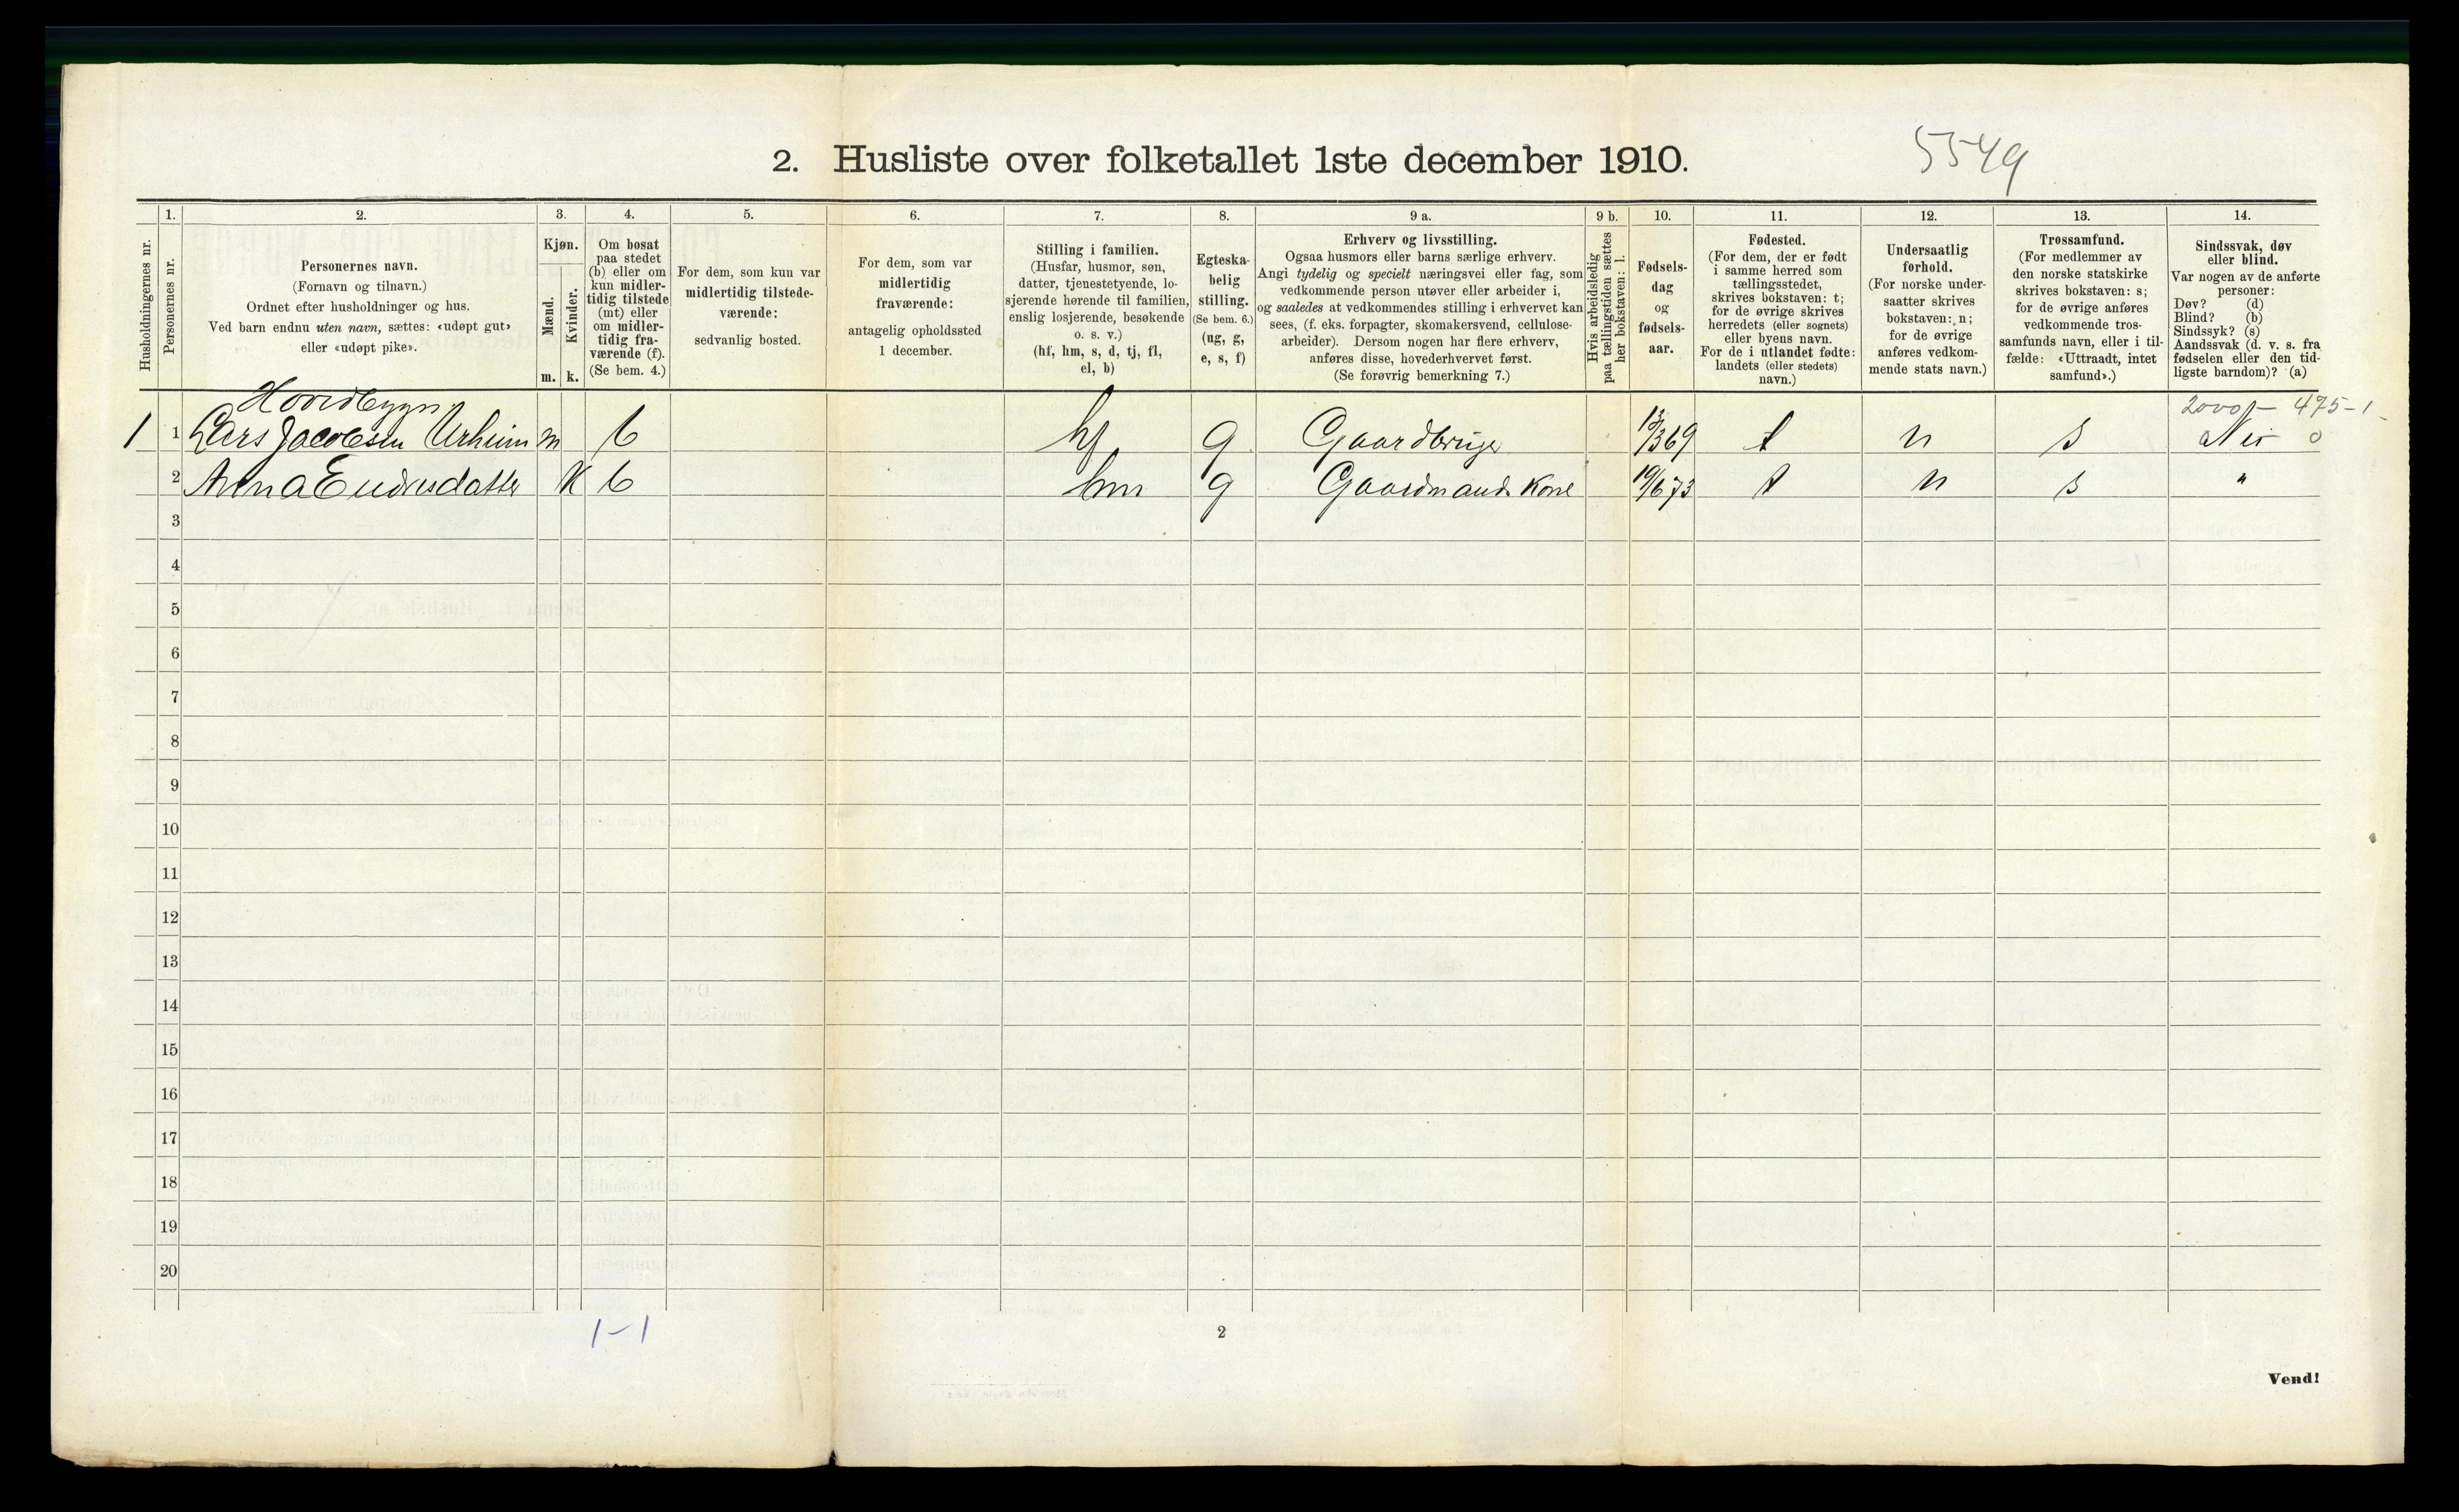 5549
2. Husliste over folketallet 1ste december 1910.
Husholdningernes nr.
1.
Personernes nr.
2.
Personernes navn.
(Fornavn og tilnavn.)
Ordnet efter husholdninger og hus.
Ved barn endnu uten navn, sættes: «udøpt gut»
eller «udøpt pike».
3.
Kjøn.
Mænd.
Kvinder.
m. k.
4.
Om bosat
paa stedet
(b) eller om
kun midler-
tidig tilstede
(mt) eller
om midler-
tidig fra-
værende (f).
(Se bem. 4.)
5.
For dem, som kun var
midlertidig tilstede-
værende:
sedvanlig bosted.
6.
For dem, som var
midlertidig
fraværende:
antagelig opholdssted
1 december.
7.
Stilling i familien.
(Husfar, husmor, søn,
datter, tjenestetyende, lo-
sjerende hørende til familien,
enslig losjerende, besøkende
o. s. v.)
(hf, hm, s, d, tj, fl,
el, b)
8.
Egteska-
belig
stilling.
(Se bem. 6.)
(ug, g,
e, s, f)
9 a.
Erhverv og livsstilling.
Ogsaa husmors eller barns særlige erhverv.
Angi tydelig og specielt næringsvei eller fag, som
vedkommende person utøver eller arbeider i,
og saaledes at vedkommendes stilling i erhvervet kan
sees, (f. eks. forpagter, skomakersvend, cellulose-
arbeider). Dersom nogen har flere erhverv,
anføres disse, hovederhvervet først.
(Se forøvrig bemerkning 7.)
9 b.
Hvis arbeidsledig
paa tællingstiden sættes
her bokstaven: l.
10.
Fødsels-
dag
og
fødsels-
aar.
11.
Fødested.
(For dem, der er født
i samme herred som
tællingsstedet,
skrives bokstaven: t;
for de øvrige skrives
herredets (eller sognets)
eller byens navn.
For de i utlandet fødte:
landets (eller stedets)
navn.)
12.
Undersaatlig
forhold.
(For norske under-
saatter skrives
bokstaven: n;
for de øvrige
anføres vedkom-
mende stats navn.)
13.
Trossamfund.
(For medlemmer av
den norske statskirke
skrives bokstaven: s;
for de øvrige anføres
vedkommende tros-
samfunds navn, eller i til-
fælde: «Uttraadt, intet
samfund».)
14.
Sindssvak, døv
eller blind.
Var nogen av de anførte
personer:
Døv? (d)
Blind? (b)
Sindssyk? (s)
Aandssvak (d. v. s. fra
fødselen eller den tid-
ligste barndom)? (a)
2000 - 475-1
1 1 Lars Jacobsen Urheim m b hf g Gaardbruger 13/3 69 t n s Nei 0
2 Anna Endresdatter K b hm g Gaardmands Kone 19/6 73 t n s "
3
4
5
6
7
8
9
10
11
12
13
14
15
16
17
18
19
20
1-1
2
Vend!